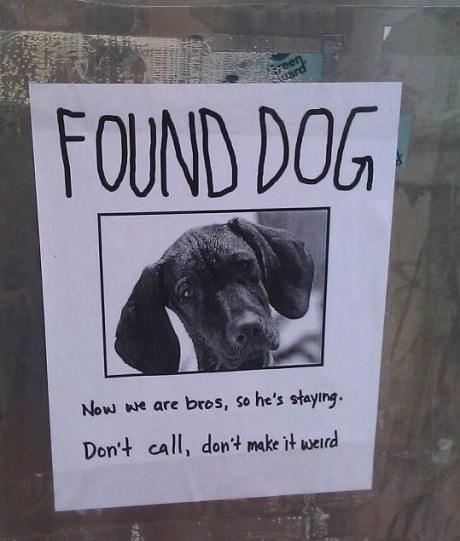 reen
uard
FOUND DOG
Now we are bros, so he's staying.
Don't call, don't make it weird